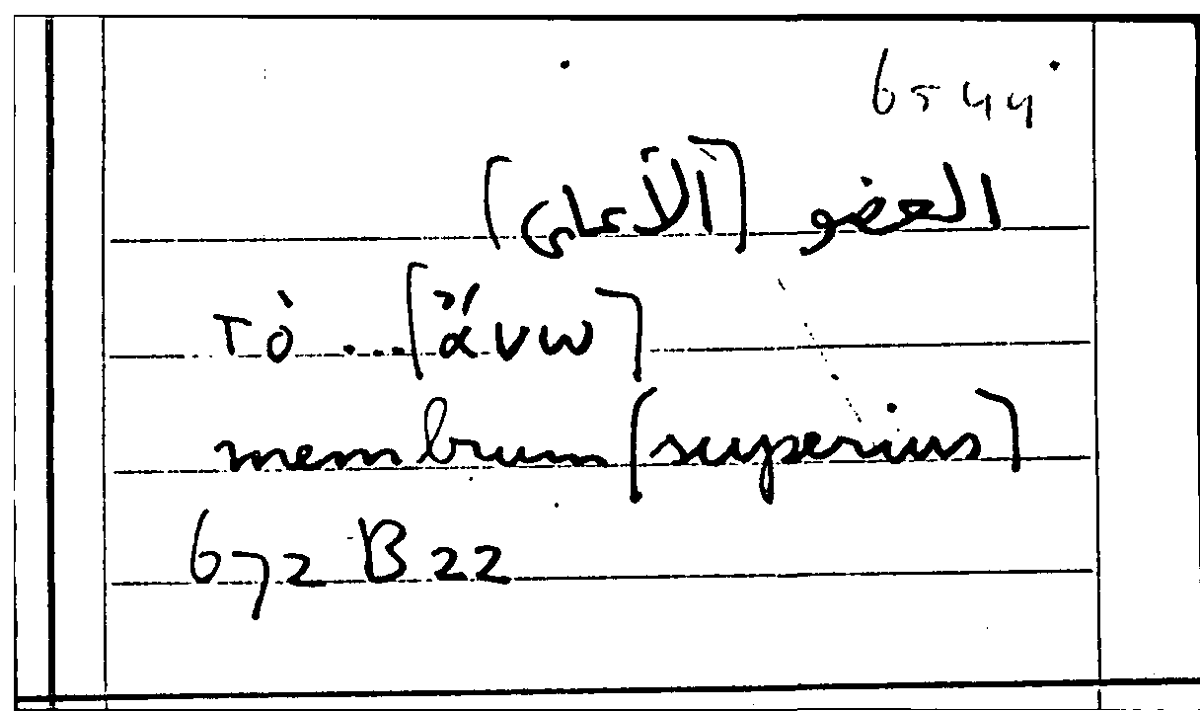 6544
العضو [الأعلى]
τὸ ... [ἄνω]
membrum [superius]
672 B 22